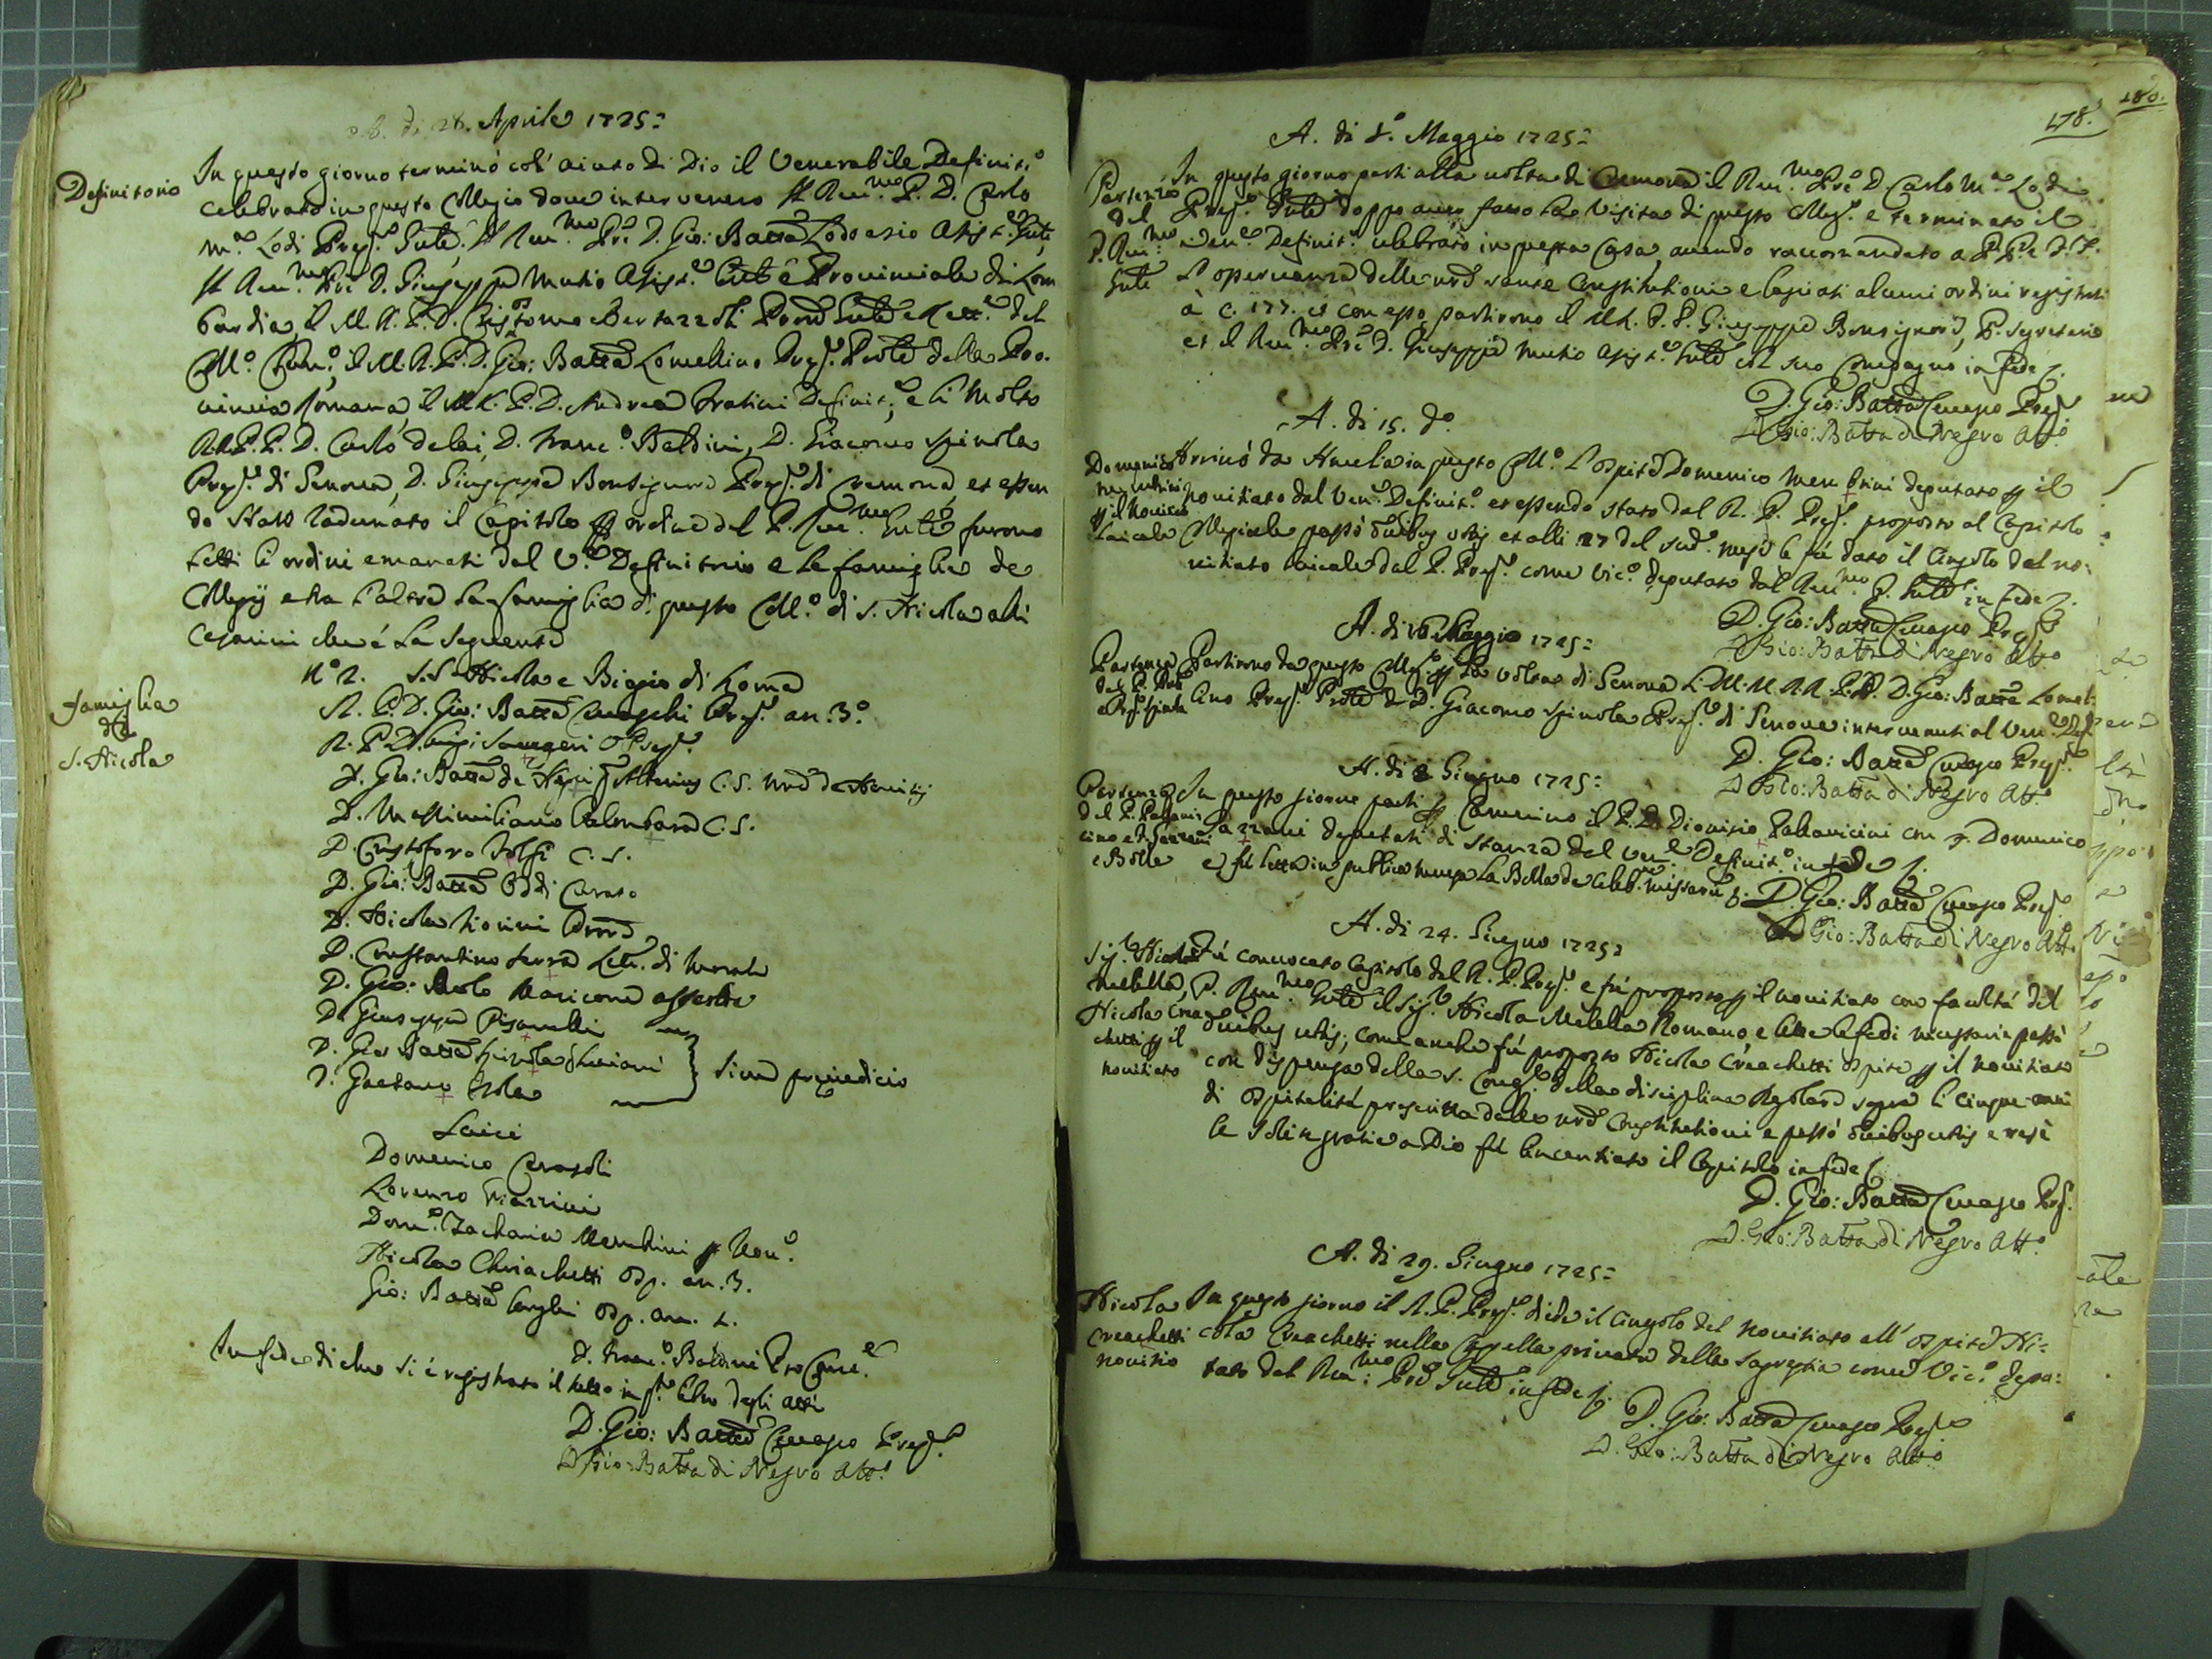 A. di 28. Aprile 1725:
Definitorio
In questo giorno terminò col' aiuto di Dio il Venerabile Definit.o
celebrato in questo Collegio dove intervenero il Rev.mo P. D. Carlo
M.a Lodi Prep.to Gnle, il Rev.mo Pre D. Gio: Batta Lodovasio Assist.e Gnle,
il Rev.mo Pre D. Giuseppe Mutio Assist.e Gnle e Provinciale di Lom
bardia il M. R. P. D. Bertazzoli Gnle e Rett.e del
Coll.o Clem.o, il M. R. P. D. Gio: Batta Lomellino Prep.to Prole della Pro-
vincia Romana, il M. R. P. D. Andrea Fratini Definit.e, e li Molto
RR. PP. D. Carlo delai, D. Franc.o Baldini, D. Giacomo Spinola
Prep.to di Genova, D. Giuseppe Bonsignore Prep.to di Cremona, et essen
do stato radunato il Capitolo ordine del P. Rev.mo Gnle furono
letti li ordini emanati dal V.e Definitorio e le famiglie de
Collegij e tra l'altre la famiglia di questo Coll.o di S. Nicola alli
Cesarini che è la seguente
famiglia
di
S. Nicola
N.o 2. S.S. Nicola e Biagio di Roma
R. P. D. Gio: Batta Prep.to an. 3.o
R. P. D. Luigi V. Prep.to
D. Gio: Batta de Negri C. S.
D. Massimiliano Palombara C. S.
D. Cristoforo C. S.
D. Gio: Batta Oddi Curato
D. Nicola
D. Constantino Serra Lett. di Morale
D. Gio: Paolo
D. Giuseppe Pisanelli
D. Gio Batta Spinola
D. Gaetano Isola
sine preiudicio
Laici
Domenico Ceragoli
Lorenzo
Dom.o Zacharia Membrini p Nov.o
Nicola Chriachetti osp. an. 3.
Gio: Batta osp. an. 1.
D. Franc.o Baldini Pro Canc.e
In fede di che si è registrato il tutto in q.to libro degli atti
D. Gio: Batta Prep.to
D. Gio: Batta di Negro Att.o
178.
180.
A. di 8.o Maggio 1725:
Partenza
del
P. Rev.mo
Gnle
In questo giorno partì alla volta di Cremona il Rev.mo Pre D. Carlo M.a Lodi
Prep.to Gnle doppo aver fatto la visita di questo Colleg.o e terminato il
Ven.e Definit.o celebrato in questa Casa, avendo raccomandato a PP. e FF.
L'osservanza delle nre sante Constitutioni e lasciati alcuni ordini registrati
à c. 177. et con esso partirono il M. R. P. D. Giuseppe Bonsignore, P. Segretario
et il Rev.mo Pre D. Giuseppe Mutio Assist.e Gnle col suo Compagno in fede
D. Gio: Batta Prep.to
D. Gio: Batta di Negro Att.o
A. di 15. d.o
Domenico
Membrini
p il Novitiato
Laicale
Arrivò da Amelia in questo Coll.o l'ospite Domenico Membrini deputato p il
novitiato dal Ven.e Definit.o et essendo stato dal R. P. Prep.to proposto al Capitolo
Collegiale passò omnibus votis et alli 27 del sud.o mese le fù dato il Cingolo del no-
vitiato laicale dal P. Prep.to come Vic.o deputato dal Rev.mo P. Gnle in fede
D. Gio: Batta Prep.to
D. Gio: Batta di Negro Att.o
A. di 16 Maggio 1725:
Partenza
del P. Prole
e Prep.to Spinola
Partirono da questo Colleg.o p la volta di Genova li M. M. R. R. P. P. D. Gio: Batta Lomel-
lino Prep.to Prole e D. Giacomo Spinola Prep.to di Genova intervenuti al Ven.e Def.
D. Gio: Batta Prep.to
D. Gio: Batta di Negro Att.o
A. di 2 Giugno 1725:
Partenza
del P. Pallavi-
cino e
e Bolla
In questo giorno partì p Camerino il P. D. Dionisio Pallavicini con F. Domenico
deputati di stanza dal Ven.e Definit.o in fede
e fù letta in publica mensa la Bolla de Celeb. missarum
D. Gio: Batta Prep.to
D. Gio: Batta di Negro Att.o
A. di 24. Giugno 1725:
Sig.r Nicola
Melella,
Nicola Crea-
chetti p il
novitiato
Fù convocato Capitolo dal R. P. Prep.to e fù proposto p il novitiato con facoltà del
P. Rev.mo Gnle il Sig.r Nicola Melella Romano, e lette le fedi necessarie passò
omnibus votis; come anche fù proposto Nicola Creachetti ospite p il novitiato
con dispensa della S. Cong.e della disciplina Regolare sopra li cinque anni
di ospitalità prescritta dalle nre Constitutioni e passò omnibus votis e rese
le solite gratie a Dio fù licentiato il Capitolo in fede
D. Gio: Batta Prep.to
D. Gio: Batta di Negro Att.o
A. di 29. Giugno 1725:
Nicola
Creachetti
novitio
In questo giorno il R. P. Prep.to diede il Cingolo del novitiato all' ospite Ni-
cola Creachetti nella Cappella privata della Sagrestia come Vic.o depu-
tato dal Rev.mo Pre Gnle in fede
D. Gio: Batta Prep.to
D. Gio: Batta di Negro Att.o